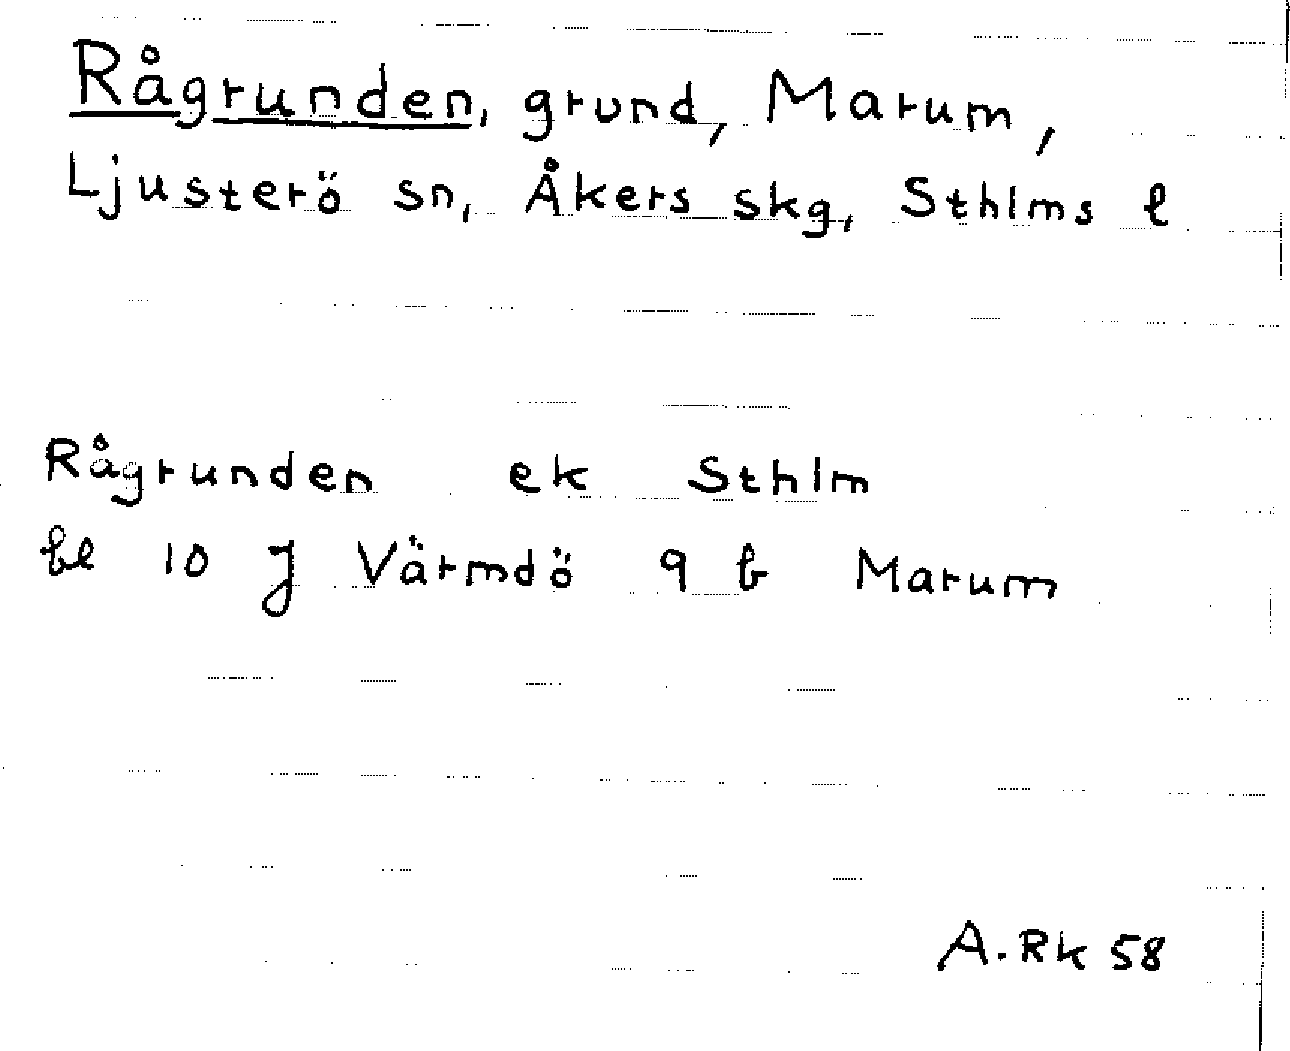 Rågrunden, grund, Marum,
Ljusterö sn, Åkers skg, Sthlms l
Rågrunden ek Sthlm
bl 10 J Värmdö 9 b Marum
A. Rk 58